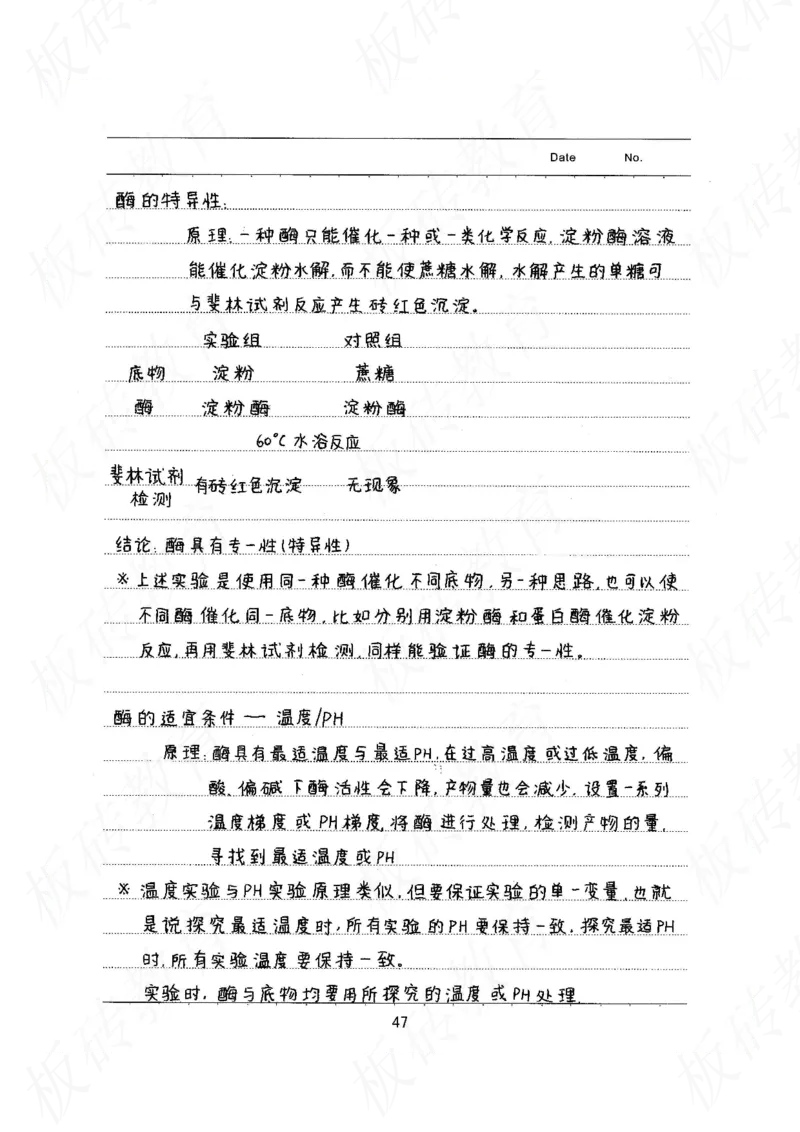 Date No.
酶的特异性:
原理:一种酶只能催化一种或一类化学反应.淀粉酶溶液
能催化淀粉水解,而不能使蔗糖水解.水解产生的单糖可
与斐林试剂反应产生砖红色沉淀。
实验组 对照组
底物 淀粉 蔗糖
酶 淀粉酶 淀粉酶
60°C水溶反应
斐林试剂
检测 有砖红色沉淀 无现象
结论:酶具有专一性(特异性)
※上述实验是使用同一种酶催化不同底物,另一种思路,也可以使
不同酶催化同一底物,比如分别用淀粉酶和蛋白酶催化淀粉
反应,再用斐林试剂检测.同样能验证酶的专一性。
酶的适宜条件 — 温度/PH
原理:酶具有最适温度与最适PH,在过高温度或过低温度,偏
酸、偏碱下酶活性会下降,产物量也会减少.设置一系列
温度梯度或PH梯度,将酶进行处理,检测产物的量,
寻找到最适温度或PH
※温度实验与PH实验原理类似,但要保证实验的单一变量,也就
是说探究最适温度时,所有实验的PH要保持一致,探究最适PH
时,所有实验温度要保持一致。
实验时,酶与底物均要用所探究的温度或PH处理.
47
板砖教育